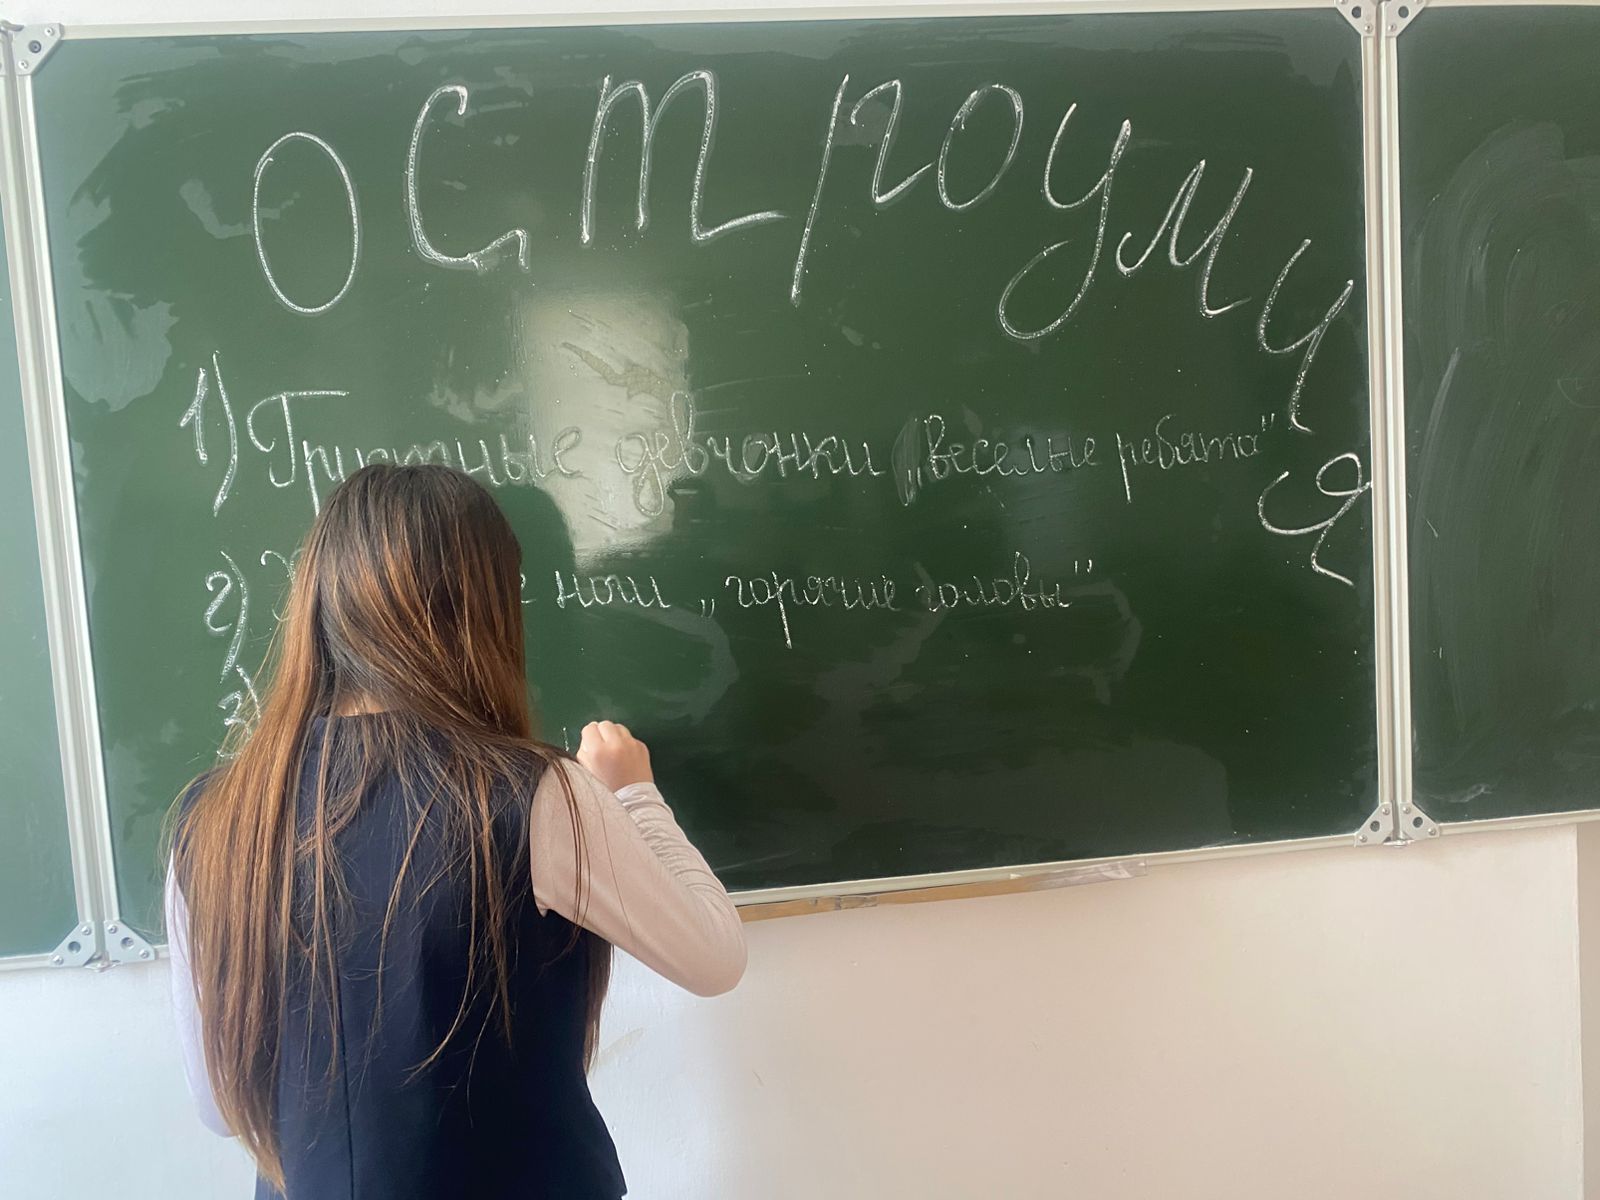 Остроумия
1) Грустные девчонки „веселые ребята"
2) ноги „горячие головы"
3)